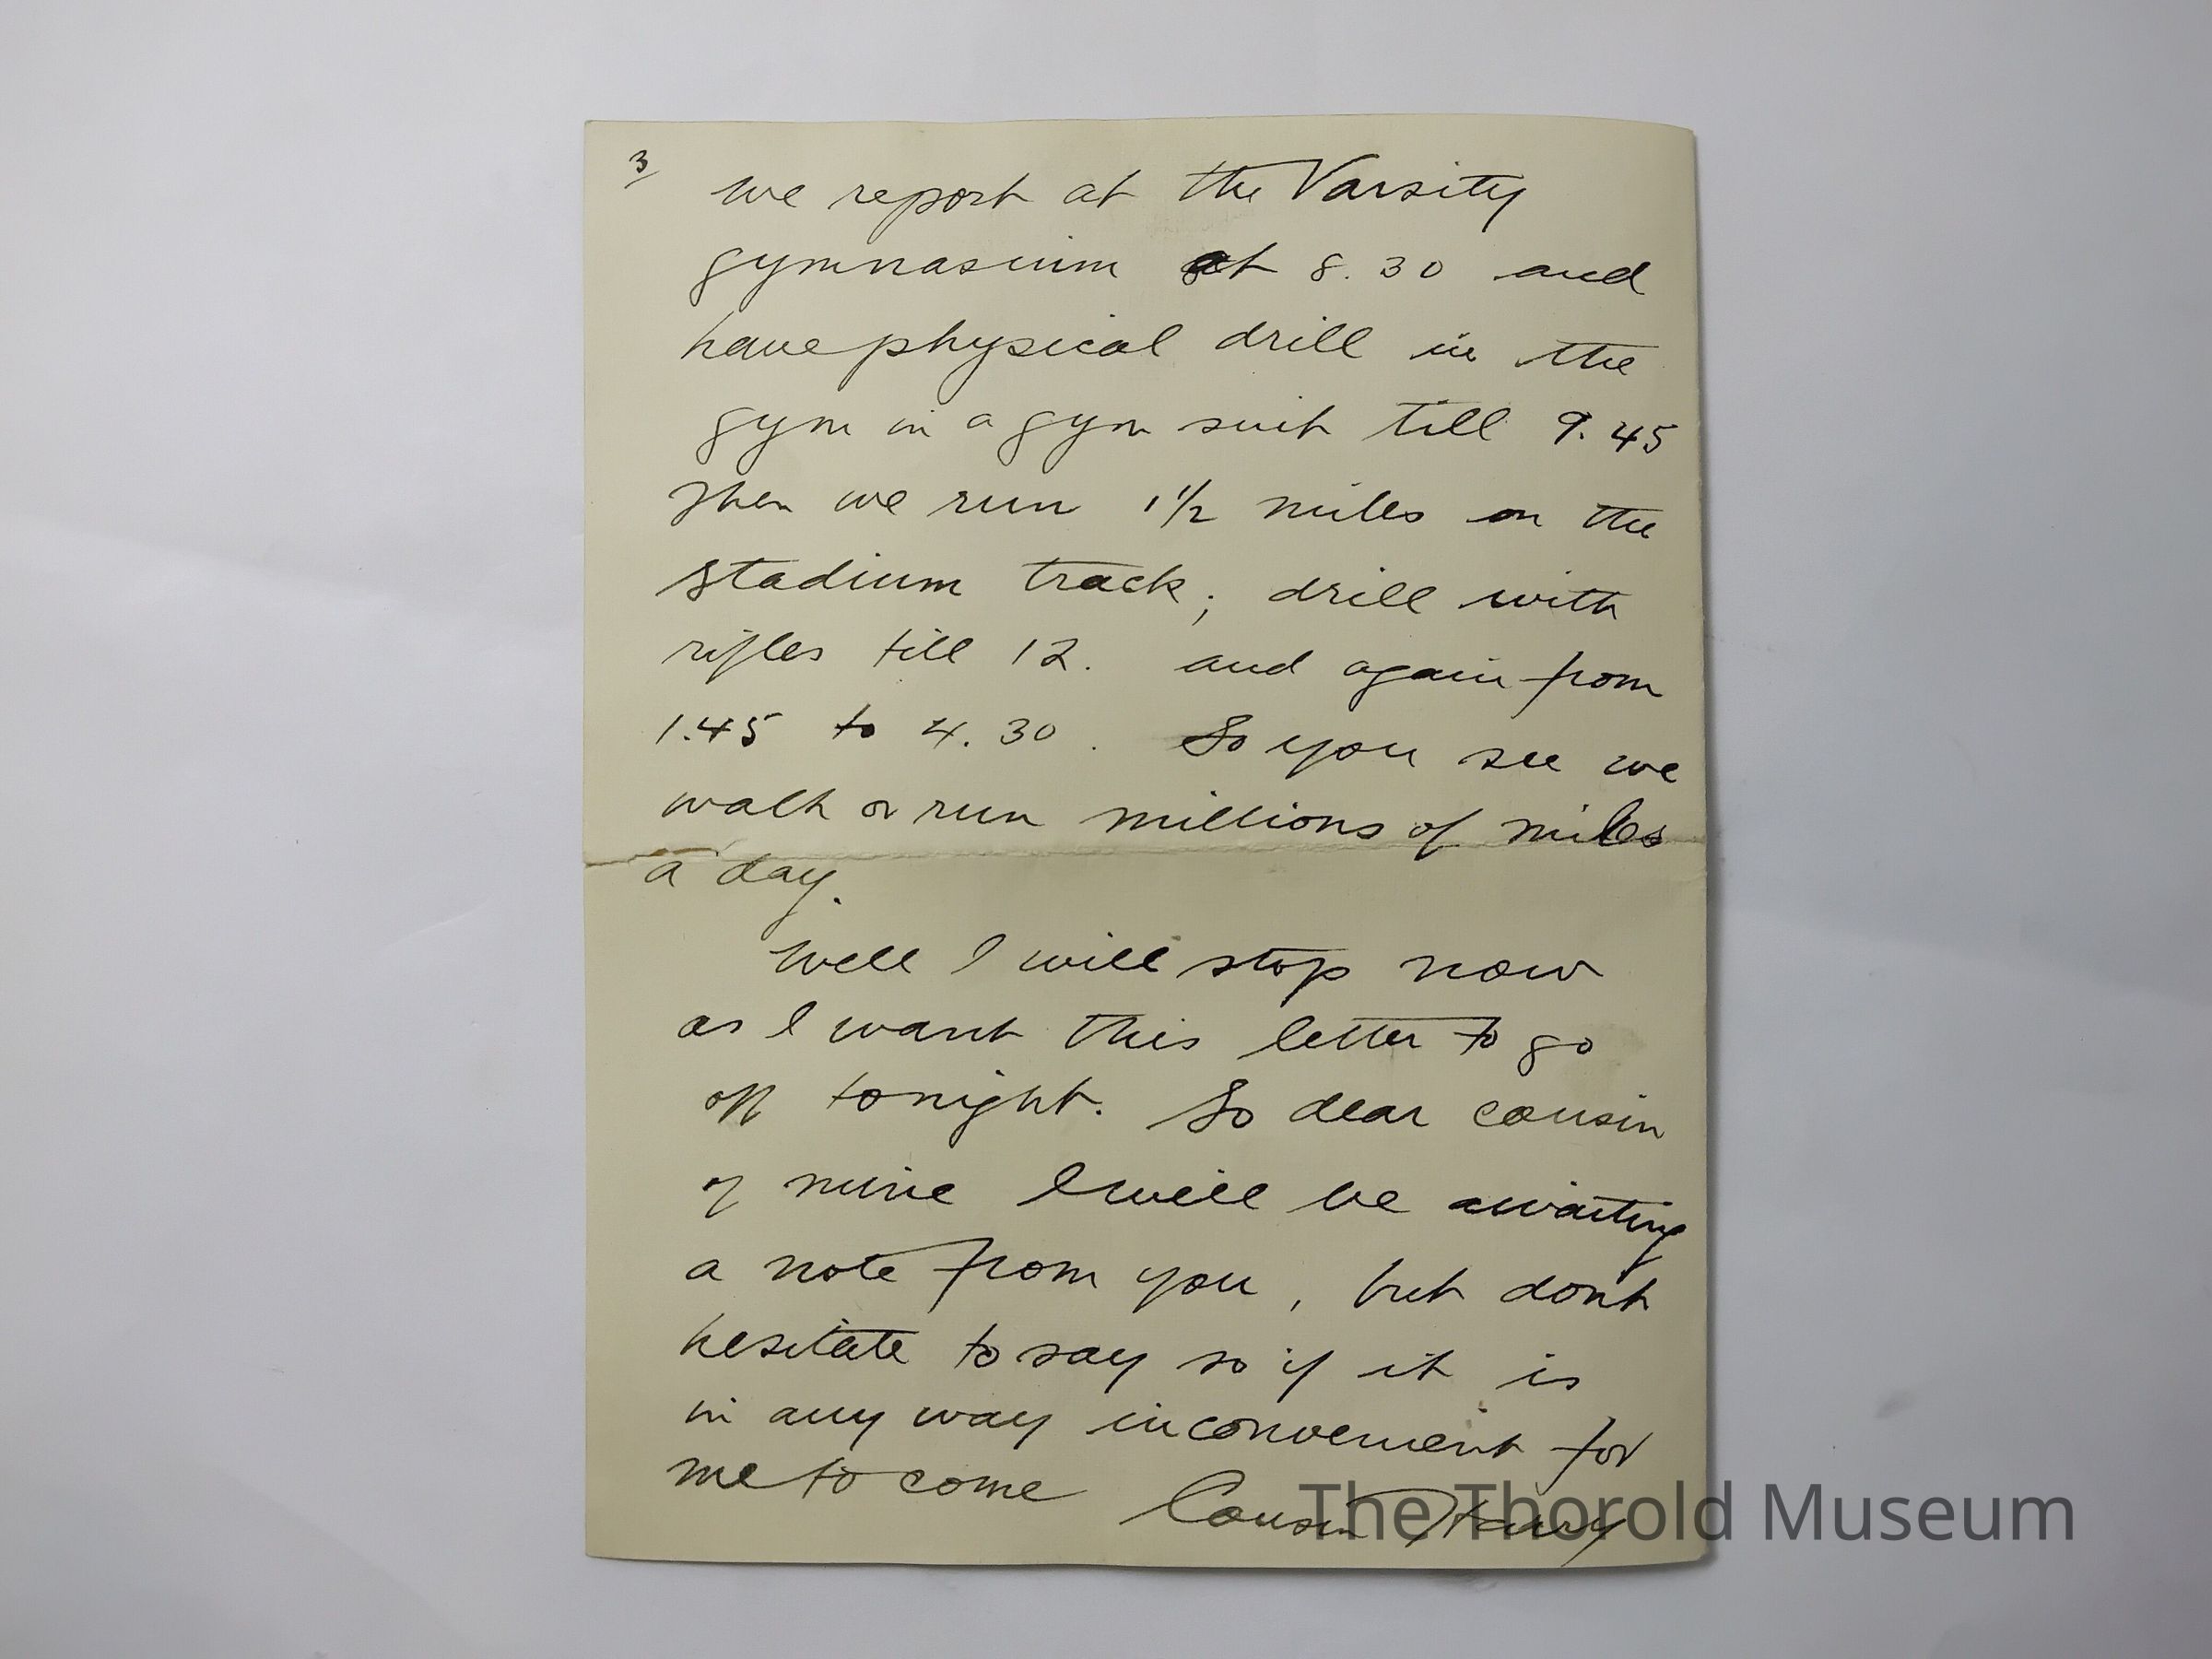 3/
we report at the Varsity
gymnasium at 8.30 and
have physical drill in the
gym in a gym suit till 9.45
Then we run 1 1/2 miles on the
stadium track; drill with
rifles till 12. and again from
1.45 to 4.30. So you see we
walk or run millions of miles
a day.
Well I will stop now
as I want this letter to go
off tonight. So dear cousin
of mine I will be awaiting
a note from you, but dont
hesitate to say so if it is
in any way inconvenient for
me to come Cousin Harry
The Thorold Museum